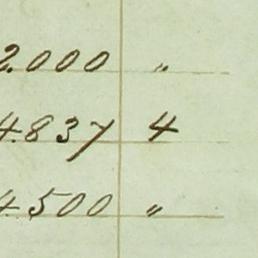 2.000 "
4.837 4
4.500 "